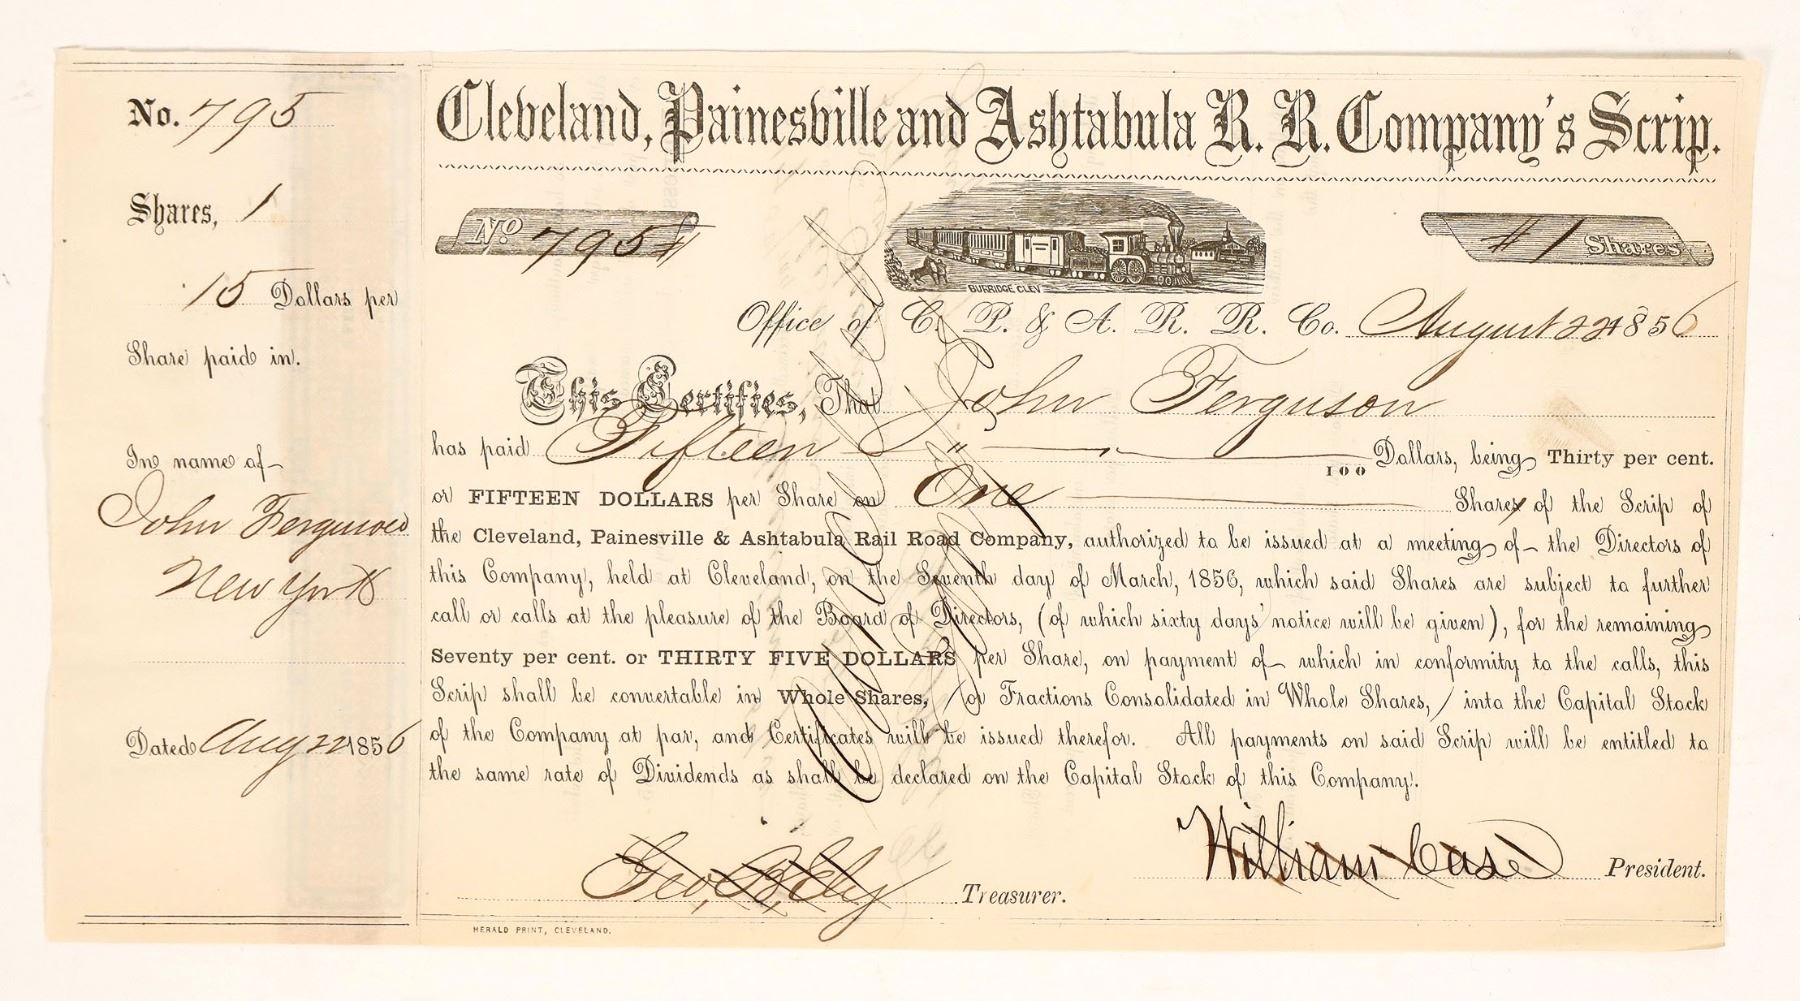 No. 795
Shares, 1
15 Dollars per
Share paid in.
In name of
John Ferguson
New York
Dated Aug 22 1856
Cleveland, Painesville and Ashtabula R. R. Company's Scrip.
No 795
1 Shares
BURRIDGE CLEV
Office of C. P. & A. R. R. Co. August 22 1856
This Certifies, That John Ferguson
has paid Fifteen " 100 Dollars, being Thirty per cent.
or FIFTEEN DOLLARS per Share on One Shares of the Scrip of
the Cleveland, Painesville & Ashtabula Rail Road Company, authorized to be issued at a meeting of the Directors of
this Company, held at Cleveland, on the Seventh day of March, 1856, which said Shares are subject to further
call or calls at the pleasure of the Board of Directors, (of which sixty days' notice will be given), for the remaining
Seventy per cent. or THIRTY FIVE DOLLARS per Share, on payment of which in conformity to the calls, this
Scrip shall be convertable in Whole Shares, (or Fractions Consolidated in Whole Shares,) into the Capital Stock
of the Company at par, and Certificates will be issued therefor. All payments on said Scrip will be entitled to
the same rate of Dividends as shall be declared on the Capital Stock of this Company.
Cancelled
Geo. B. Ely Treasurer.
William Case President.
HERALD PRINT, CLEVELAND.